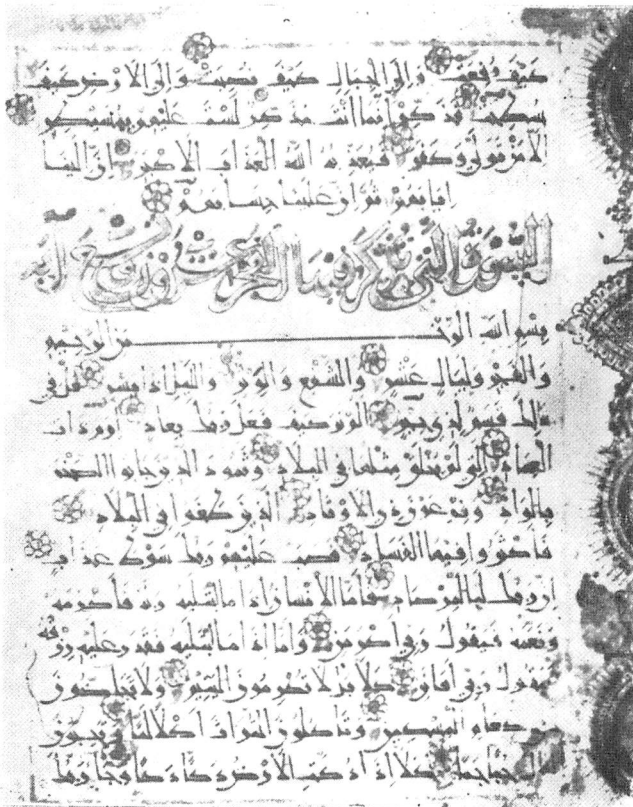 كيف رفعت والى الجبال كيف نصبت والى الارض كيف
سطحت فذكر انما انت مذكر لست عليهم بمصيطر
الا من تولى وكفر فيعذبه الله العذاب الاكبر ان الينا
ايابهم ثم ان علينا حسابهم
السورة التي يذكر فيها الفجر آية
بسم الله الرحمن الرحيم
والفجر وليال عشر والشفع والوتر واليل اذا يسر هل في
ذلك قسم لذي حجر الم تر كيف فعل ربك بعاد ارم ذات
العماد التي لم يخلق مثلها في البلاد وثمود الذين جابوا الصخر
بالواد وفرعون ذي الاوتاد الذين طغوا في البلاد
فاكثروا فيها الفساد فصب عليهم ربك سوط عذاب
ان ربك لبالمرصاد فاما الانسان اذا ما ابتليه ربه فاكرمه
ونعمه فيقول ربي اكرمن واما اذا ما ابتليه فقدر عليه رزقه
فيقول ربي اهانن كلا بل لا تكرمون اليتيم ولا تحاضون
على طعام المسكين وتاكلون التراث اكلا لما وتحبون
المال حبا جما كلا اذا دكت الارض دكا دكا وجا ربك